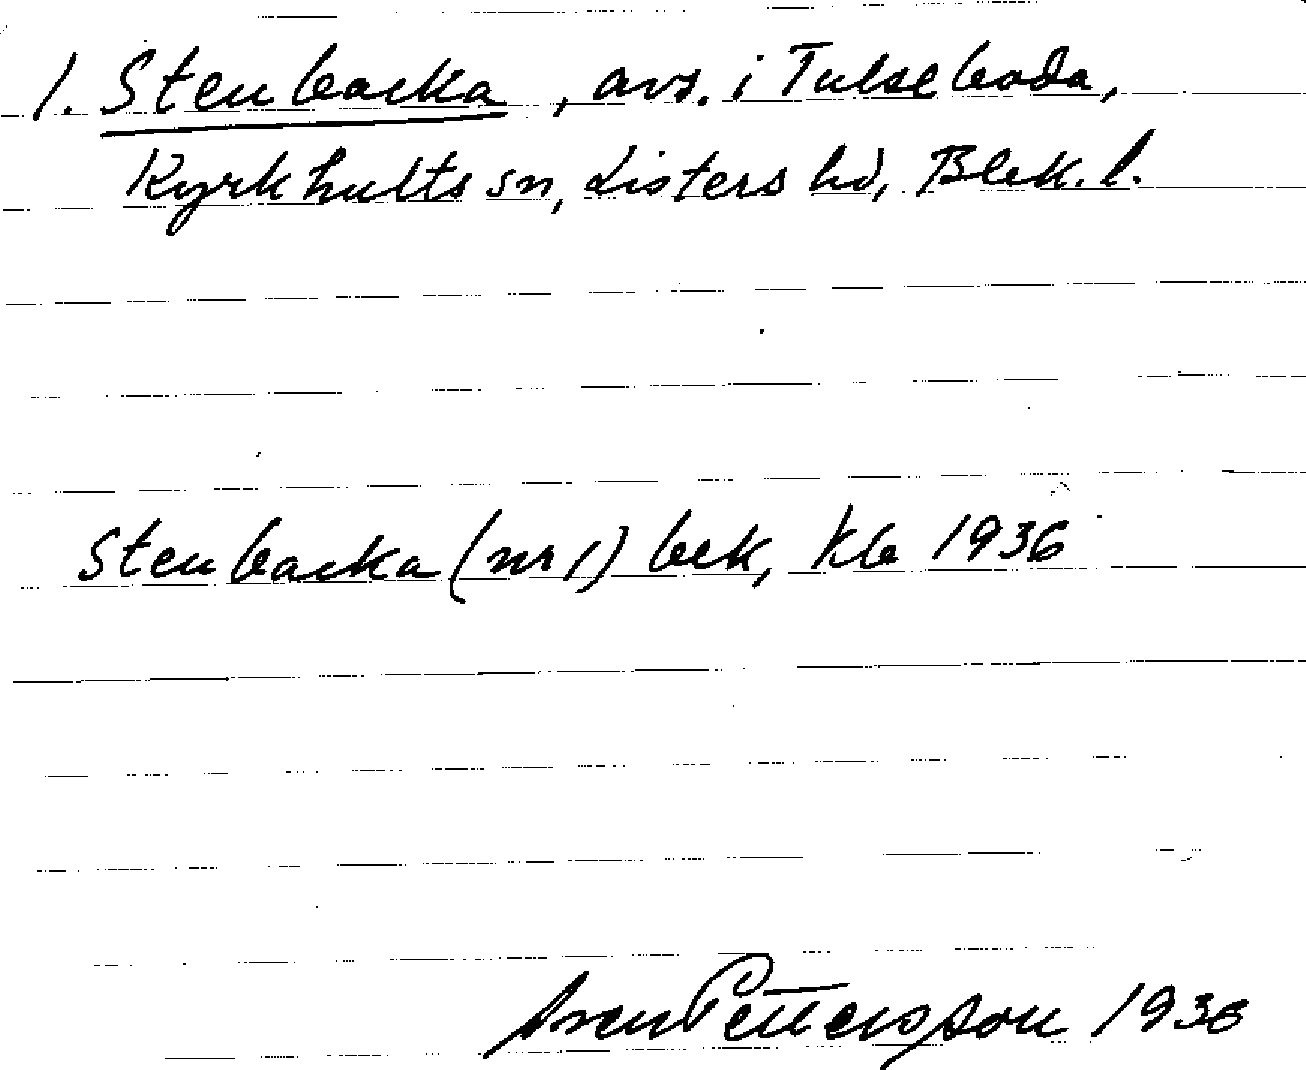 1. Stenbacka, avs. i Tulseboda,
Kyrkhults sn, Listers hd, Blek. l.
Stenbacka (nr 1) bek, kb 1936
Sven Pettersson 1936